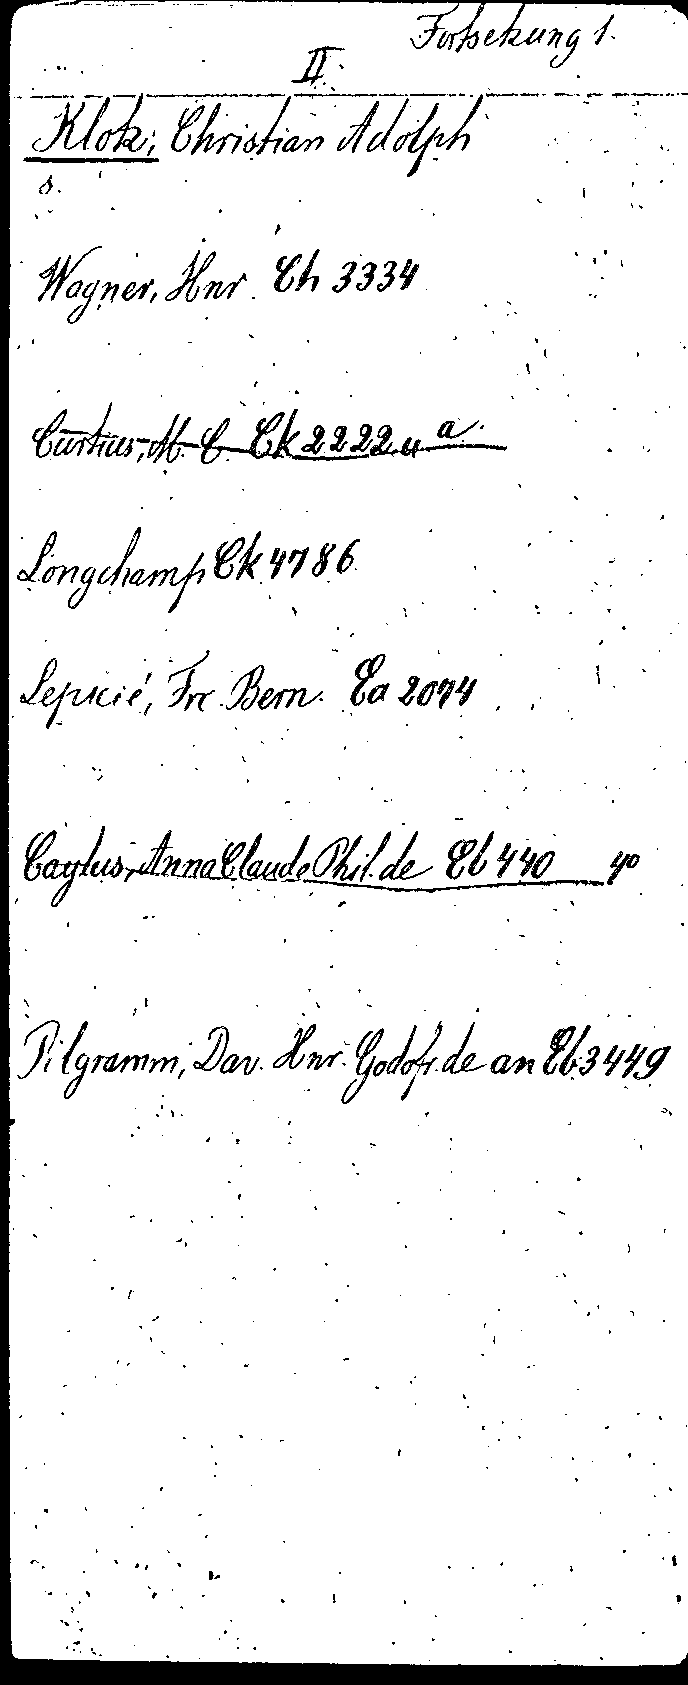 Fortsetzung 1.
II.
Klotz, Christian Adolph
s.
Wagner, Hnr. Ch 3334
Curtius, M. C. Ck 2222 u a.
Longchamp Ck 4786
Lépicié, Frc. Bern. Ea 2074
Caylus, Anna Claude Phil. de Eb 440 4°
Pilgramm, Dav. Hnr. Godofr. de an Eb 3449